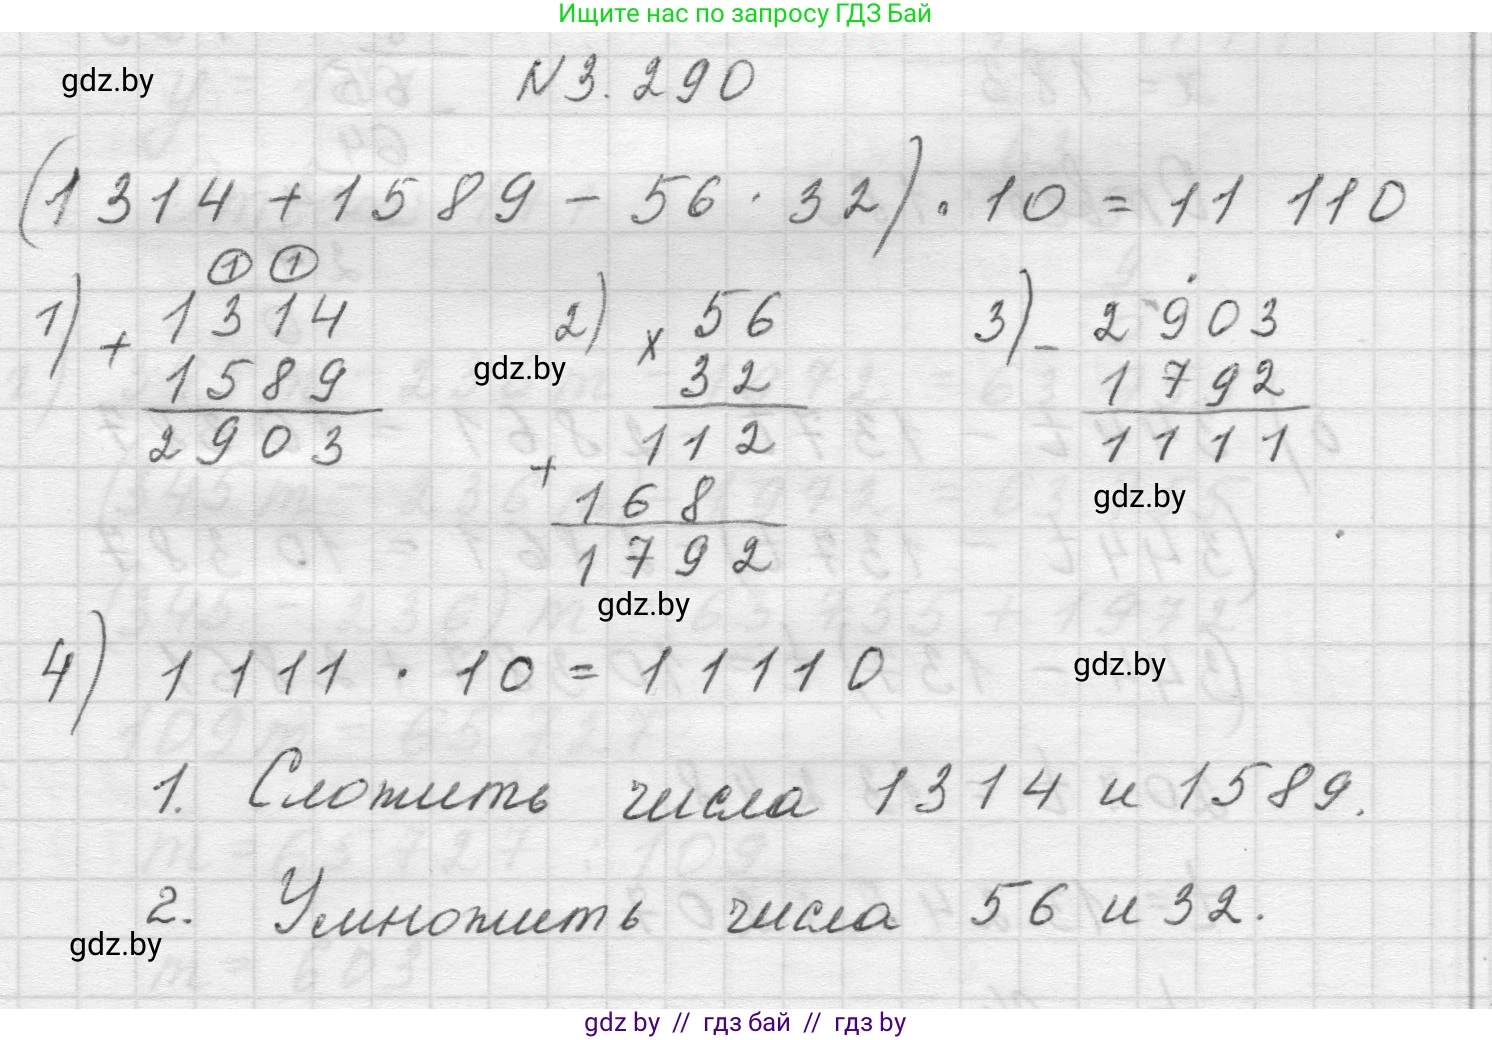 Ищите нас по запросу ГДЗ Бай
gdz.by
N 3. 290
(1314 + 1589 - 56 · 32) · 10 = 11 110
1 1
1) + 1314
1589
2903
2) x 56
32
gdz.by
112
+ 168
1792
gdz.by
3) - 2903
1792
1111
gdz.by
4) 1111 · 10 = 11110
gdz.by
1. Сложить числа 1314 и 1589.
2. Умножить числа 56 и 32.
gdz.by
gdz by // гдз бай // гдз by